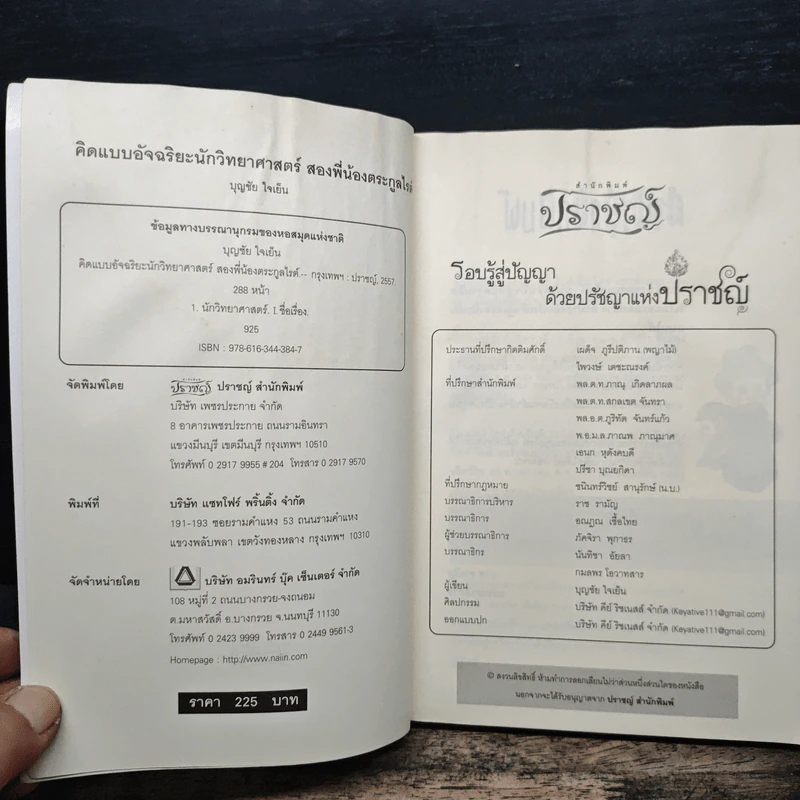 คิดแบบอัจฉริยะนักวิทยาศาสตร์ สองพี่น้องตระกูลไรต์
บุญชัย ใจเย็น
ข้อมูลทางบรรณานุกรมของหอสมุดแห่งชาติ
บุญชัย ใจเย็น
คิดแบบอัจฉริยะนักวิทยาศาสตร์ สองพี่น้องตระกูลไรต์.-- กรุงเทพฯ : ปราชญ์, 2557.
288 หน้า
1. นักวิทยาศาสตร์. I. ชื่อเรื่อง.
925
ISBN : 978-616-344-384-7
จัดพิมพ์โดย ปราชญ์ ปราชญ์ สำนักพิมพ์
บริษัท เพชรประกาย จำกัด
8 อาคารเพชรประกาย ถนนรามอินทรา
แขวงมีนบุรี เขตมีนบุรี กรุงเทพฯ 10510
โทรศัพท์ 0 2917 9955 # 204 โทรสาร 0 2917 9570
พิมพ์ที่ บริษัท แซทโฟร์ พริ้นติ้ง จำกัด
191-193 ซอยรามคำแหง 53 ถนนรามคำแหง
แขวงพลับพลา เขตวังทองหลาง กรุงเทพฯ 10310
จัดจำหน่ายโดย บริษัท อมรินทร์ บุ๊ค เซ็นเตอร์ จำกัด
108 หมู่ที่ 2 ถนนบางกรวย-จงถนอม
ต.มหาสวัสดิ์ อ.บางกรวย จ.นนทบุรี 11130
โทรศัพท์ 0 2423 9999 โทรสาร 0 2449 9561-3
Homepage : http://www.naiin.com
ราคา 225 บาท
สำนักพิมพ์
ปราชญ์
รอบรู้สู่ปัญญา
ด้วยปรัชญาแห่งปราชญ์
ประธานที่ปรึกษากิตติมศักดิ์ เผด็จ ภูรีปติภาน (พญาไม้)
ไพวงษ์ เตชะณรงค์
ที่ปรึกษาสำนักพิมพ์ พล.ต.ท.ภาณุ เกิดลาภผล
พล.ต.ท.สกลเขต จันทรา
พล.อ.ต.ภูริทัต จันทร์แก้ว
พ.อ.ม.ล.ภาณพ ภาณุมาศ
เอนก หุตังคบดี
ปรีชา บุณยกิดา
ที่ปรึกษากฎหมาย ชนินทร์วิชย์ สานุรักษ์ (น.บ.)
บรรณาธิการบริหาร ราช รามัญ
บรรณาธิการ อณฎณ เชื้อไทย
ผู้ช่วยบรรณาธิการ ภัคจิรา พุกาธร
บรรณาธิกร นันทิชา อัยลา
กมลพร โอวาทสาร
ผู้เขียน บุญชัย ใจเย็น
ศิลปกรรม บริษัท คีย์ รีซเนสส์ จำกัด (Keyative111@gmail.com)
ออกแบบปก บริษัท คีย์ รีซเนสส์ จำกัด (Keyative111@gmail.com)
© สงวนลิขสิทธิ์ ห้ามทำการลอกเลียนไม่ว่าส่วนหนึ่งส่วนใดของหนังสือ
นอกจากจะได้รับอนุญาตจาก ปราชญ์ สำนักพิมพ์